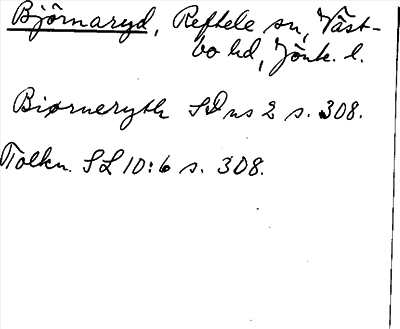 Björnaryd, Reftele sn, Väst-
bo hd, Jönk. l.
Biørneryth SDns 2 s. 308.
Tolkn. SL 10:6 s. 308.